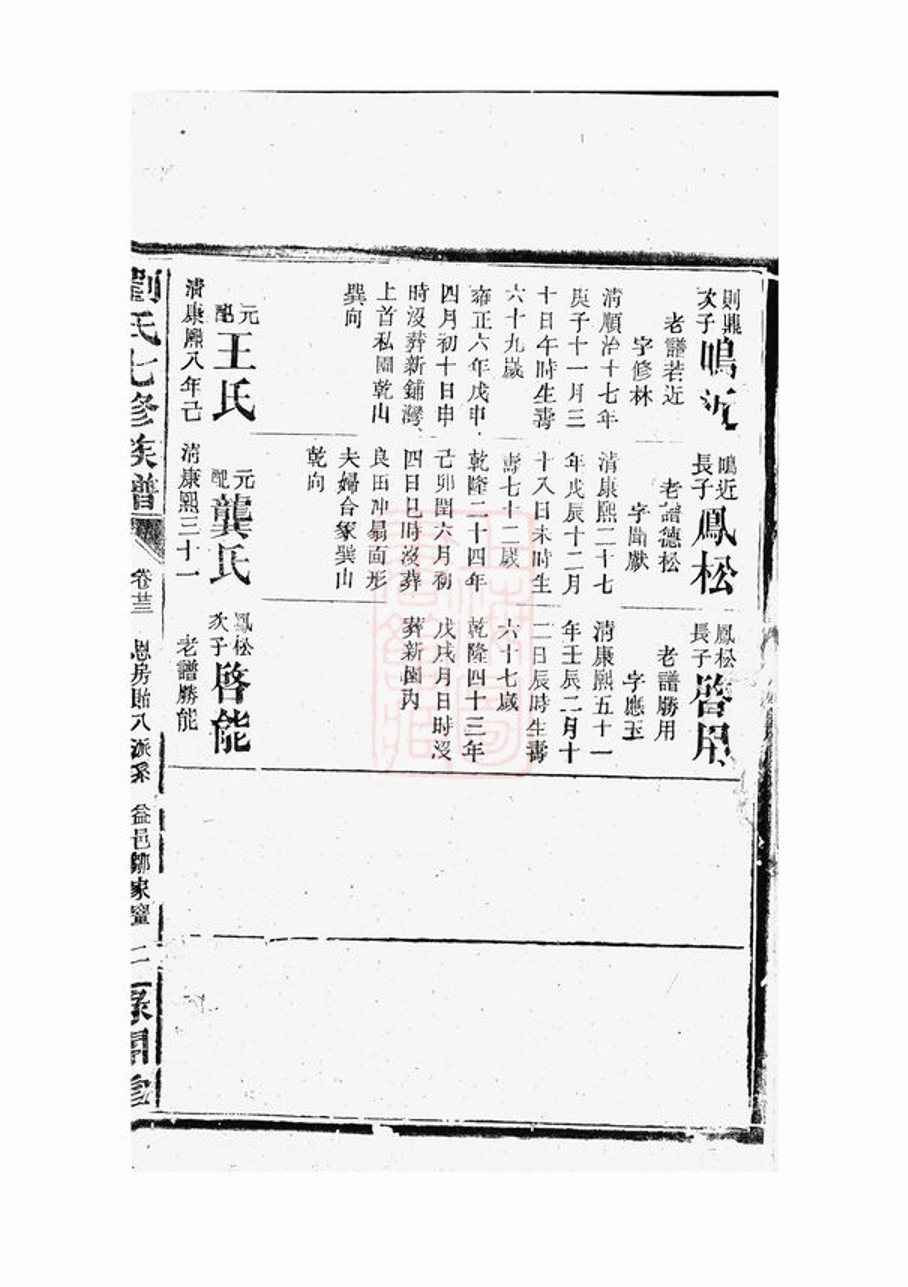 則鼎
次子
鳴近
老譜若近
字修林
清順治十七年
庚子十一月三
十日午時生壽
六十九歲
雍正六年戊申
四月初十日申
時沒葬新鋪灣
上首私園乾山
巽向
元
配
王氏
清康熙八年己
鳴近
長子
鳳松
老譜德松
字
獻
清康熙二十七
年戊辰十二月
十八日未時生
壽七十二歲
乾隆二十四年
己卯閏六月初
四日巳時沒葬
良田冲扇面形
夫婦合冢巽山
乾向
元
配
龔氏
清康熙三十一
鳳松
長子
啓用
老譜勝用
字應玉
清康熙五十一
年壬辰二月十
二日辰時生壽
六十七歲
乾隆四十三年
戊戌月日時沒
葬新園內
鳳松
次子
啓能
老譜勝能
劉氏七修族譜
卷廿三
恩房貽八派系
益邑鄒家窰
二